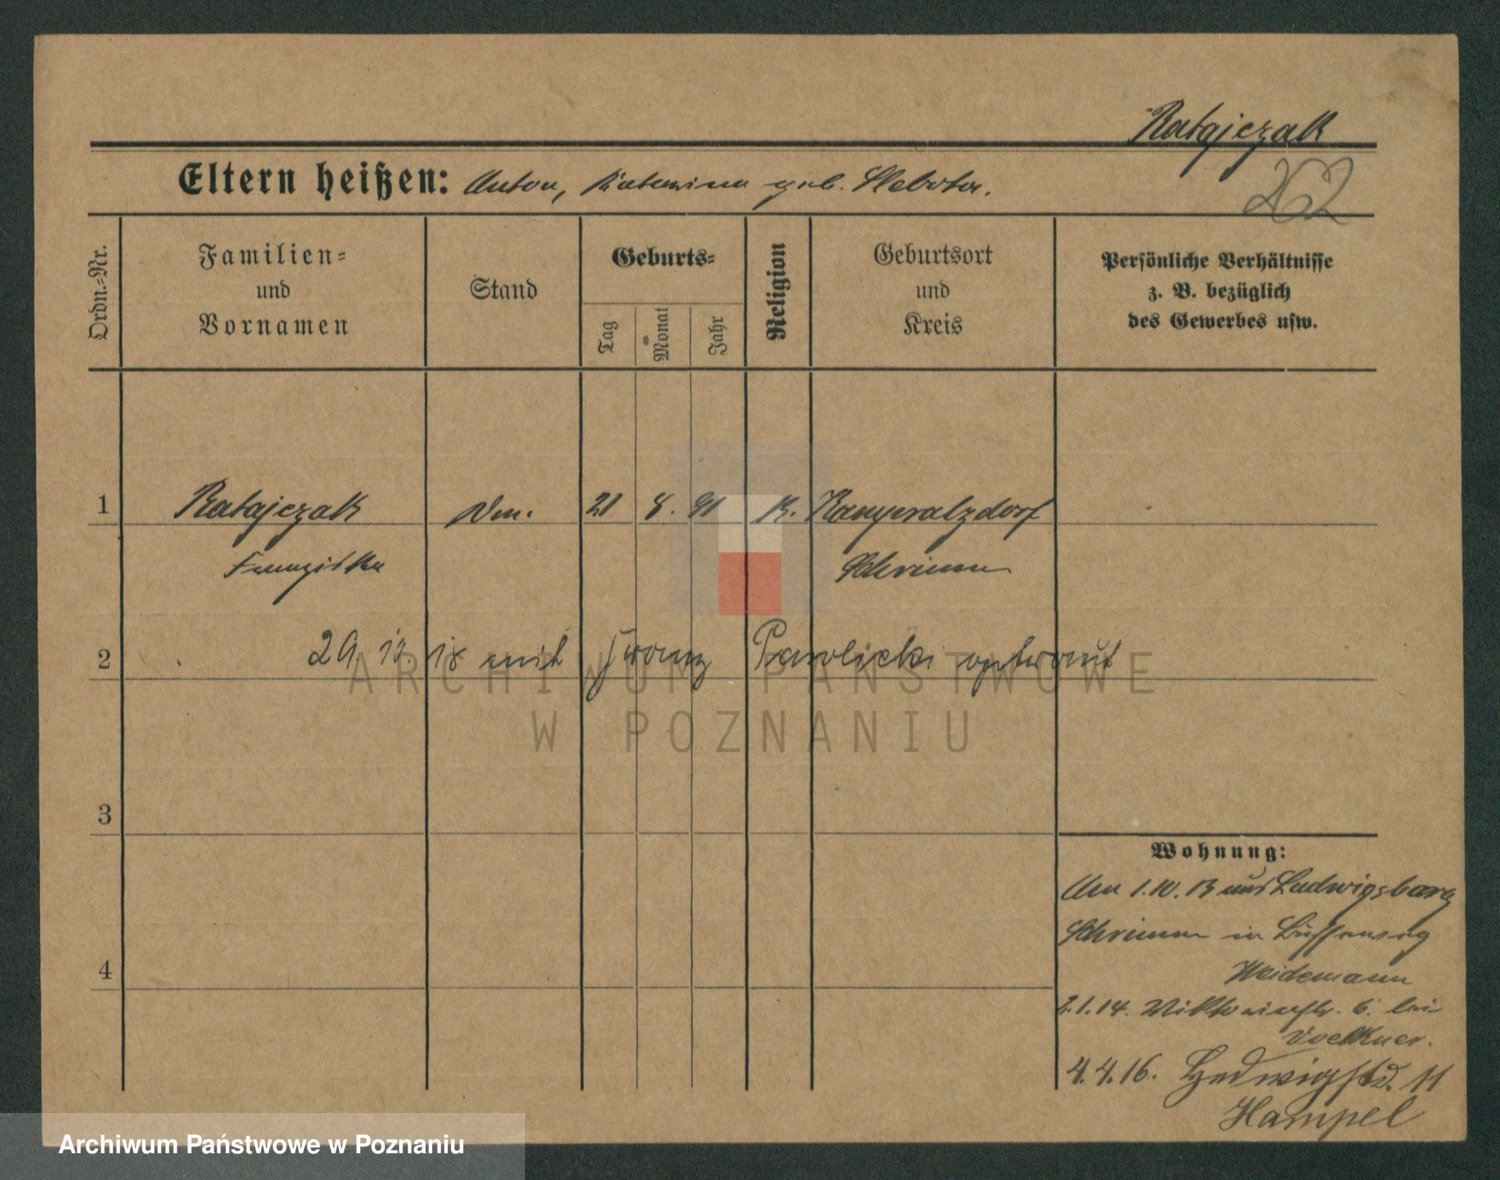 Ratajczak
262
Eltern heißen: Anton, Katarina geb. Slebota.
Ordn.=Nr.
Familien=
und
Vornamen
Stand
Geburts=
Tag
Monat
Jahr
Religion
Geburtsort
und
Kreis
Persönliche Verhältnisse
z. B. bezüglich
des Gewerbes usw.
1 Ratajczak 21 8. 91 K.
Franziska Schrimm
2 29 18 mit Franz getraut
3
4
Wohnung:
Am 1.10.13 aus Ludwigsberg
Schrimm in
Weidemann
2.1.14. Viktoriastr. 6. bei
Voelkner.
4.4.16. Hedwigstr. 11
Hampel
ARCHIWUM PAŃSTWOWE
W POZNANIU
Archiwum Państwowe w Poznaniu